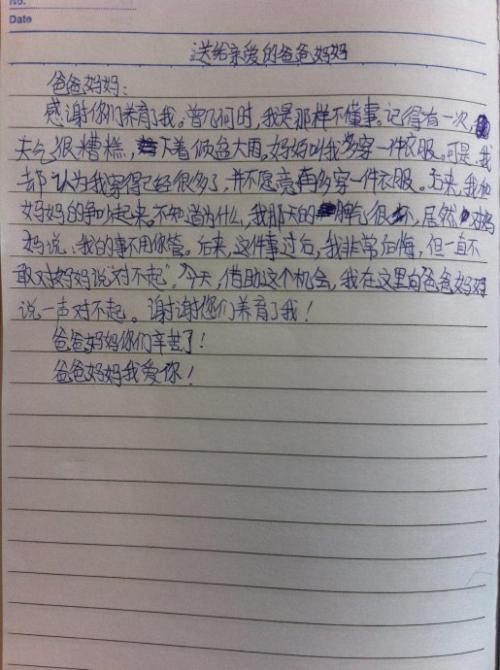 No.
Date
送给亲爱的爸爸妈妈
爸爸妈妈:
感谢你们养育了我。曾几何时,我是那样不懂事,记得有一次,
天气很糟糕,下着倾盆大雨。妈妈叫我多穿一件衣服。可是,我
却认为我穿得已经很多了,并不愿意再多穿一件衣服。后来,我和
妈妈的争吵起来。不知道为什么,我那天的脾气很坏,居然对妈
妈说:我的事不用你管。后来,这件事过后,我非常后悔,但一直不
敢对妈妈说“对不起”。今天,借助这个机会,我在这里向爸爸妈妈
说一声对不起。谢谢您们养育了我!
爸爸妈妈你们辛苦了!
爸爸妈妈我爱你!